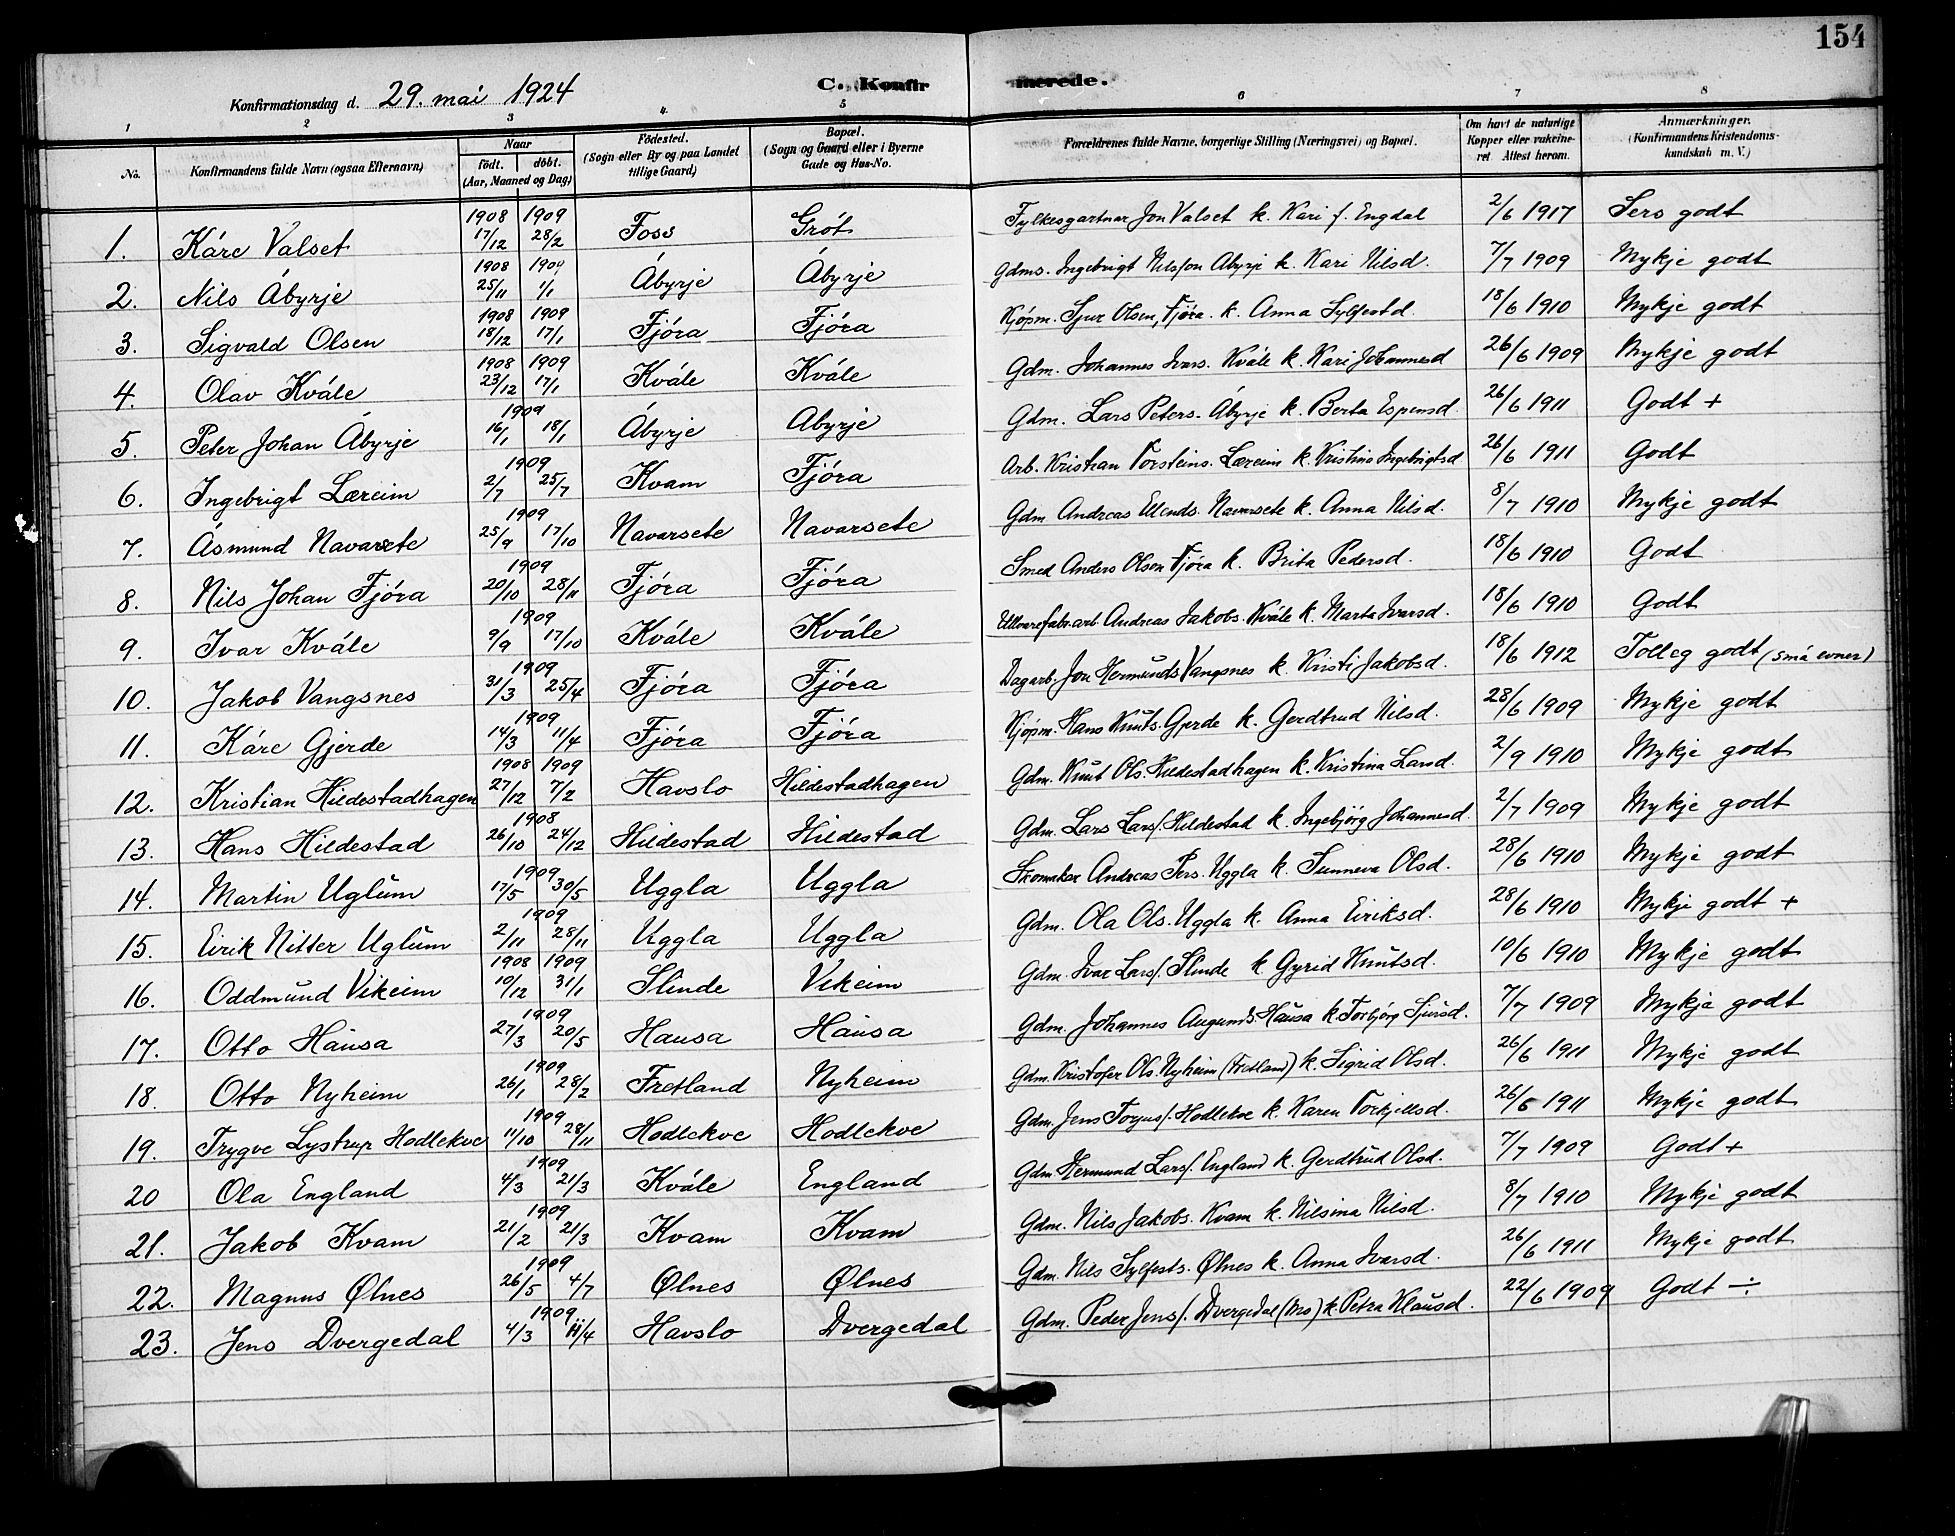 154
Konfirmationsdag d. 29. mai 1924 C. Konfirmerede.
1 2 3 4. 5 6 7 8
No. Konfirmandens fulde Navn (ogsaa Efternavn) Naar födt. döbt. (Aar, Maaned og Dag) Födested. (Sogn eller By og paa Landet tillige Gaard) Bopæl. (Sogn og Gaard eller i Byerne Gade og Hus-No. Forældrenes fulde Navne, borgerlige Stilling (Næringsvei) og Bopæl. Om havt de naturlige Kopper eller vakcineret. Attest herom. Anmærkninger. (Konfirmandens Kristendomskundskab m. V.)
1. Kåre Valset 1908 17/12 1909 28/2 Foss Gröt Fylkesgartnar Jon Valset k. Kari f. Engdal 2/6 1917 Sers godt
2. Nils Åbyrje 1908 25/11 1909 1/1 Åbyrje Åbyrje Gdms. Ingebrigt Nilsson Åbyrje k. Kari Nilsd. 7/7 1909 Mykje godt
3. Sigvald Olsen 1908 18/12 1909 17/1 Fjöra Fjöra Kjöpm. Sjur Olsen, Fjöra. k. Anna Sylfestd. 18/6 1910 Mykje godt
4. Olav Kvåle 1908 23/12 1909 17/1 Kvåle Kvåle Gdm. Johannes Ivars. Kvåle k. Kari Johannesd 26/6 1909 Mykje godt
5. Peter Johan Åbyrje 1909 16/1 18/1 Åbyrje Åbyrje Gdm. Lars Peters. Åbyrje k. Berta Espensd. 26/6 1911 Godt +
6. Ingebrigt Læreim 1909 2/7 25/7 Kvam Fjöra Arb. Kristian Torsteins. Læreim k. Kristina Ingebrigtsd 26/6 1911 Godt
7. Åsmund Navarsete 1909 25/9 17/10 Navarsete Navarsete Gdm Andreas Ellends. Navarsete k. Anna Nilsd. 8/7 1910 Mykje godt
8. Nils Johan Fjöra 1909 20/10 28/11 Fjöra Fjöra Smed Anders Olsen Fjöra k. Brita Pedersd. 18/6 1910 Godt
9. Ivar Kvåle 1909 9/9 17/10 Kvåle Kvåle Ullvarefabr.arb. Andreas Jakobs. Kvåle k. Marta Ivarsd. 18/6 1910 Godt
10. Jakob Vangsnes 1909 31/3 25/4 Fjöra Fjöra Dagarb. Jon Hermunds. Vangsnes k. Kristi Jakobsd. 18/6 1912 Tolleg godt (små evner)
11. Kåre Gjerde 1909 14/3 11/4 Fjöra Fjöra Kjöpm. Hans Knuts. Gjerde k. Gerdtrud Nilsd. 28/6 1909 Mykje godt
12. Kristian Hildestadhagen 1908 27/12 1909 7/2 Havslo Hildestadhagen Gdm. Knut Ols. Hildestadhagen k. Kristina Larsd. 2/9 1910 Mykje godt
13. Hans Hildestad 1908 26/10 24/12 Hildestad Hildestad Gdm. Lars Larss. Hildestad k. Ingebjörg Johannesd. 2/7 1909 Mykje godt
14. Martin Uglum 1909 17/5 30/5 Uggla Uggla Skomaker Andreas Pers. Uggla k. Sunneva Olsd. 28/6 1910 Mykje godt
15. Eirik Nitter Uglum 1909 2/11 28/11 Uggla Uggla Gdm. Ola Ols. Uggla k. Anna Eiriksd. 28/6 1910 Mykje godt +
16. Oddmund Vikeim 1908 10/12 1909 31/1 Slinde Vikeim Gdm. Ivar Larss. Slinde k Gyrid Knutsd. 10/6 1910 Mykje godt
17. Otto Hausa 1909 27/3 20/5 Hausa Hausa Gdm. Johannes Augunds. Hausa k. Torbjörg Sjursd. 7/7 1909 Mykje godt
18. Otto Nyheim 1909 26/1 28/2 Fretland Nyheim Gdm. Kristofer Ols. Nyheim (Fretland) k. Sigrid Olsd. 26/6 1911 Mykje godt
19. Trygve Lystrup Hodlekve 1909 11/10 28/11 Hodlekve Hodlekve Gdm. Jens Hodlekve k. Karen Torkjellsd. 26/5 1911 Mykje godt
20 Ola England 1909 4/3 21/3 Kvåle England Gdm Hermund Larss. England k. Gerdtrud Olsd. 7/7 1909 Godt +
21. Jakob Kvam 1909 21/2 21/3 Kvam Kvam Gdm. Nils Jakobs. Kvam k. Nilsina Nilsd. 8/7 1910 Mykje godt
22. Magnus Ølnes 1909 26/5 4/7 Ølnes Ølnes Gdm. Nils Sylfests. Ølnes k. Anna Ivarsd. 26/6 1911 Mykje godt
23. Jens Dvergedal 1909 4/3 11/4 Havslo Dvergedal Gdm. Peder Jenss. Dvergedal (Mo) k. Petra Klausd. 22/6 1909 Godt ÷